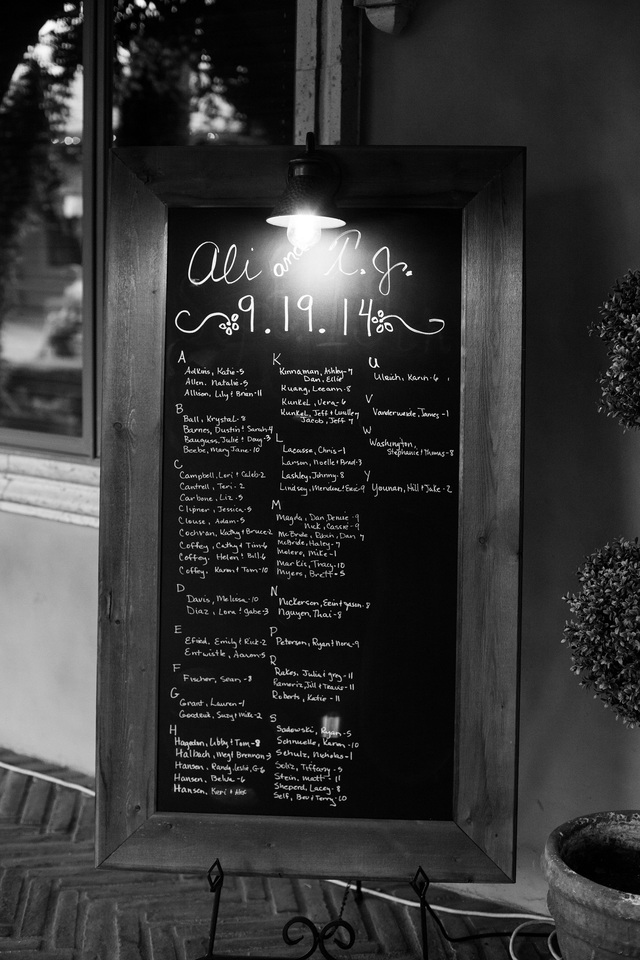 Ali and T.J.
9.19.14
A
Adkins, Katie-5
Allen, Natalie-5
Allison, Lily & Brian-11
B
Ball, Krystal-8
Barnes, Dustin & Sarah-4
Bauguss, Julie & Doug-3
Beebe, Mary Jane-10
C
Campbell, Lori & Caleb-2
Cantrell, Teri-2
Carbone, Liz-5
Clipner, Jessica-5
Clouse, Adam-5
Cochran, Kathy & Bruce-2
Coffey, Cathy & Tim-6
Coffey, Helen & Bill-6
Coffey, Karin & Tom-10
D
Davis, Melissa-10
Diaz, Lora & Gabe-3
E
Efied, Emily & Rick-2
Entwistle, Aaron-5
F
Fischer, Sean-8
G
Grant, Lauren-1
Goodrick, Suzy & Mike-2
H
Hagedon, Libby & Tom-8
Halbach, Meg & Brennan-3
Hansen, Randy, Leslie, G-6
Hansen, Bekah-6
Hansen, Keri & Alex
K
Kinnaman, Ashley-7
Dan, Ellie
Kuang, Leeann-8
Kunkel, Vera-6
Kunkel, Jeff & Luelle-7
Jacob, Jeff 7
L
Lacassa, Chris-1
Larson, Noelle & Brad-3
Lashley, Johnny-8
Lindsey, & Eric-9
M
Magda, Dan, Denise-9
Nick, Cassie-9
McBride, Robin, Dan 7
McBride, Haley-7
Melero, Mike-1
Markis, Tracy-10
Myers, Brett-5
N
Nickerson, Erin & Jason-8
Nguyen, Thai-8
P
Peterson, Ryan & Nora-9
R
Rakes, Julia & Greg-11
Rameriz, Jill & Travis-11
Roberts, Katie-11
S
Sadowski, Ryan-5
Schnuelle, Karin-10
Schulz, Nicholas-1
Solz, Tiffany-5
Stein, Matt-11
Sheperd, Lacey-8
Self, Bev & Terry-10
U
Ulrich, Karin-6
V
Vanderweide, James-1
W
Washington,
Stephanie & Thomas-8
Y
Younan, Hill & Jake-2